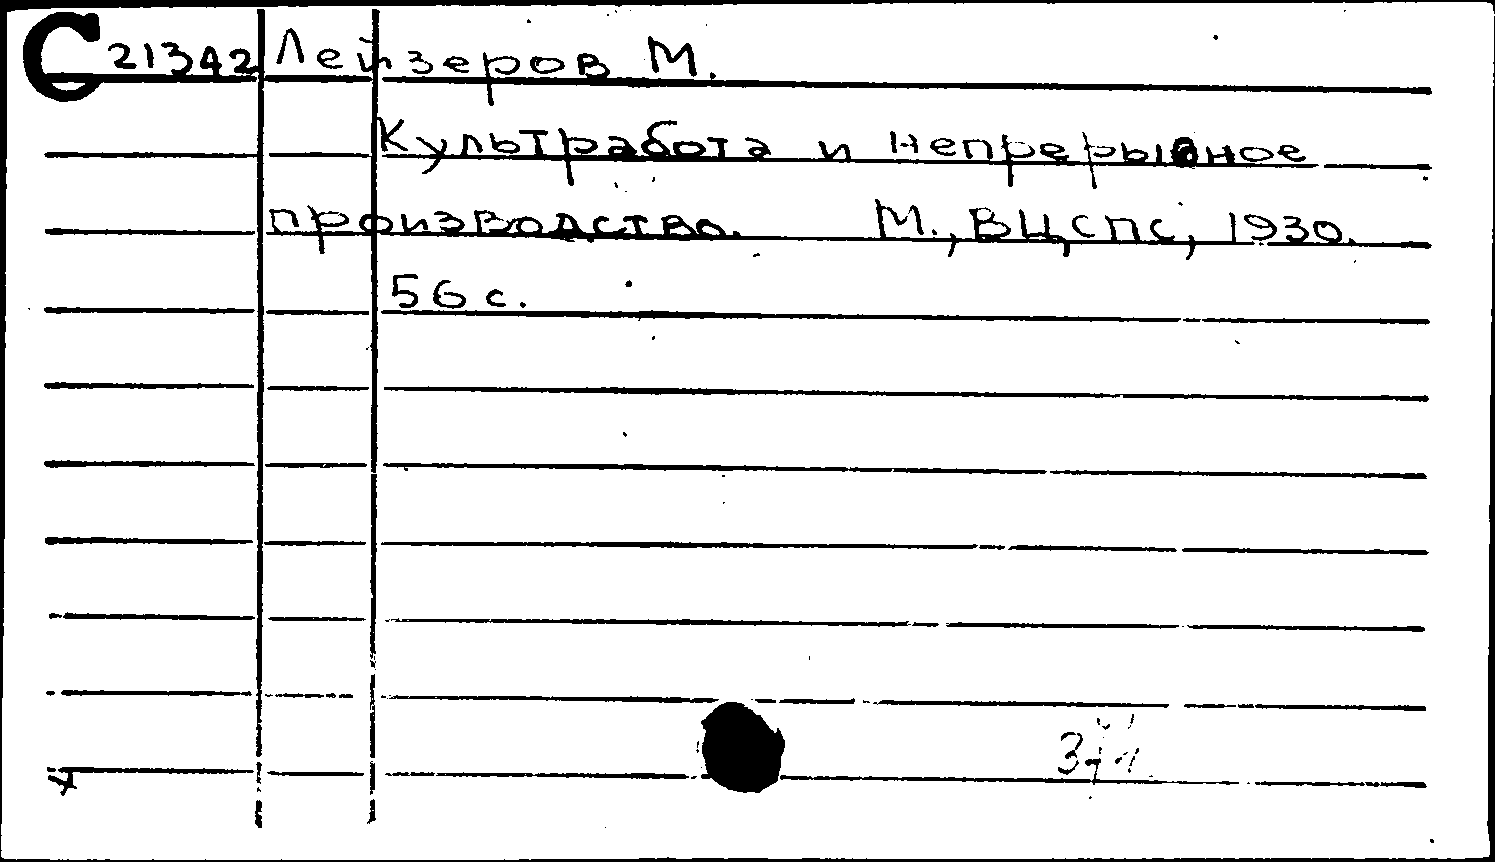 С 21342 Лейзеров М.
Культработа и непрерывное
производство. М., ВЦСПС, 1930.
56 с.